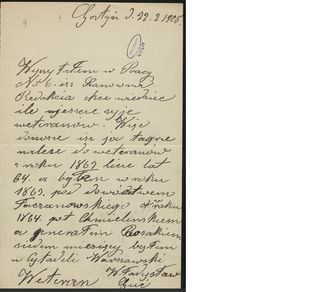 9
1
Gostyń d. 22.2.1905
Wyczytałem w Pracy
No 6 isz Szanowna
Redakcia chce wiedzieć
ile ujeszcze żyje
weteranów. Więc
donosze isz ja tagże
należe do weteranów
z roku 1863 licze lat
64. a byłem w roku
1863. pod dowództwem
Taczanowskiego w roku
1864. pot Chmielinskiem
a generałem Bosakiem
siedem miesięcy byłem
w Cytadeli Warszawski
Weteran Władysław